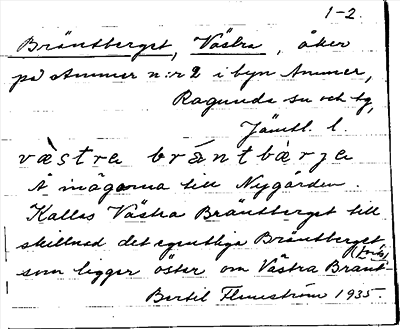 1-2.
Bräntberget, Västra, åker
på Ammer n:r 2 i byn Ammer,
Ragunda sn och tg,
Jämtl. l.
västra brántbàrja
Å inägorna till Nygården.
Kallas Västra Bräntberget till
skillnad det egentliga Bräntberget
som ligger öster om Västra Bränt
Bertil Flemström 1935.